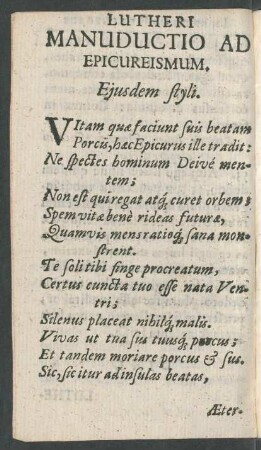 LUTHERI
MANUDUCTIO AD
EPICUREISMUM.
Ejusdem styli.
VItam quæ faciunt suis beatam
Porcis, hæc Epicurus ille tradit:
Ne spectes hominum Deivé men-
tem;
Non est qui regat atq́; curet orbem;
Spem vitæ benè rideas futuræ,
Quamvis mens ratioq́; sana mon-
strent.
Te soli tibi finge procreatum,
Certus cuncta tuo esse nata Ven-
tri;
Silenus placeat nihilq́; malis.
Vivas ut tua sus tuusq́; porcus;
Et tandem moriare porcus & sus.
Sic, sic itur ad insulas beatas,
Æter-